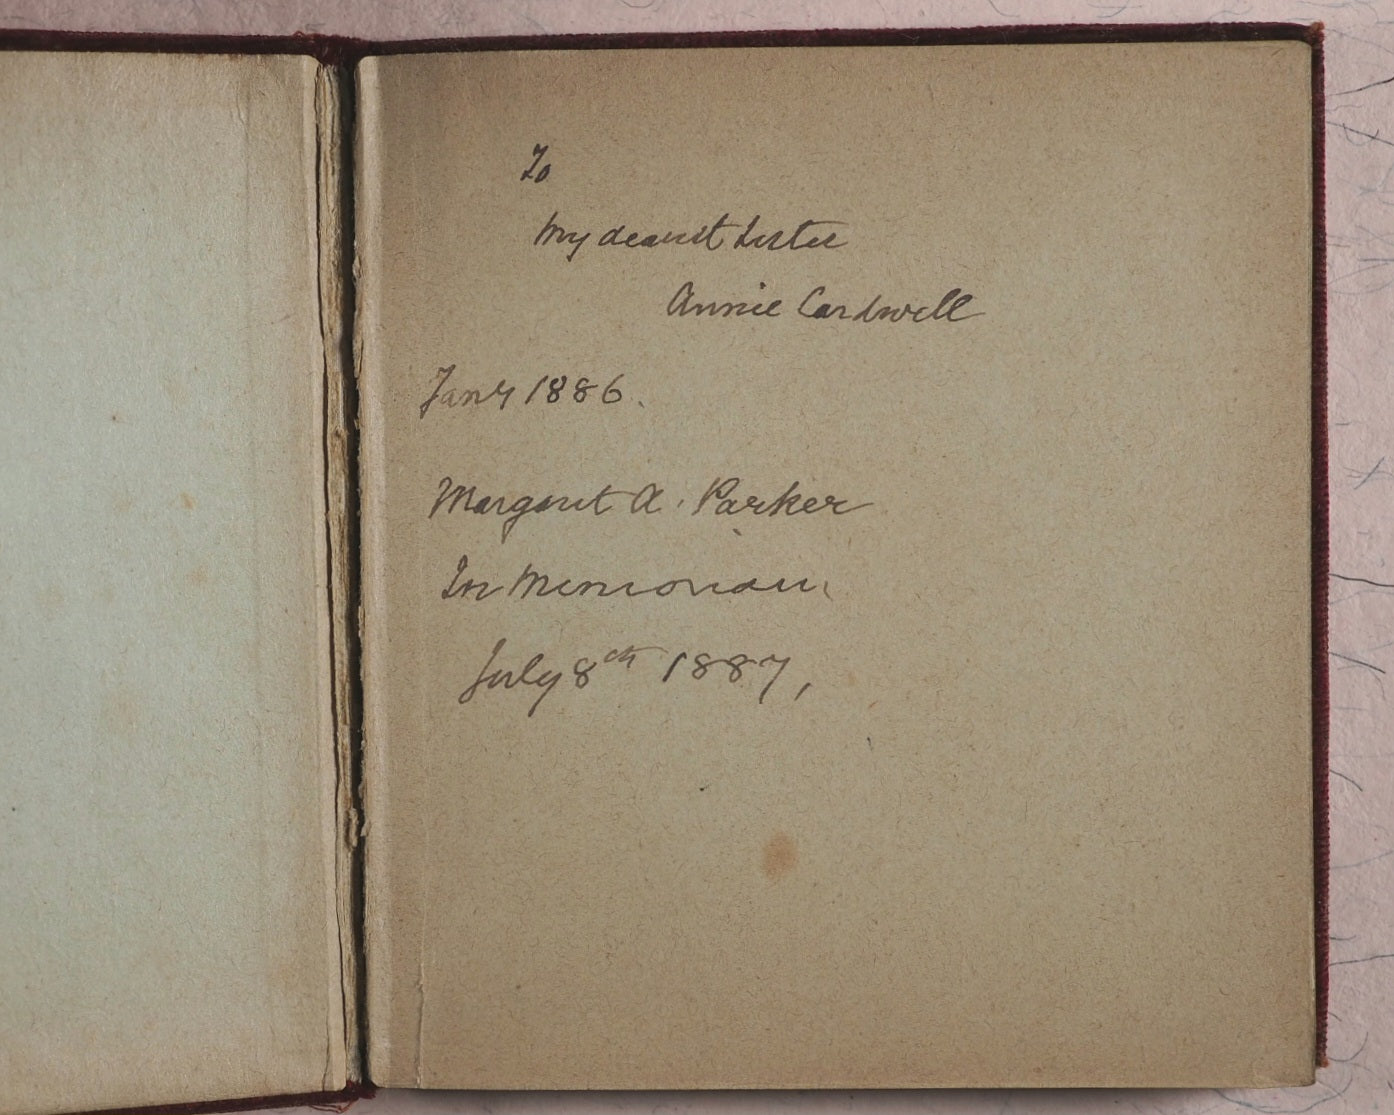 To
My dearest Sister
Annie Cardwell
Jany 1886.
Margaret A. Parker
In Memoriam
July 8th 1887,